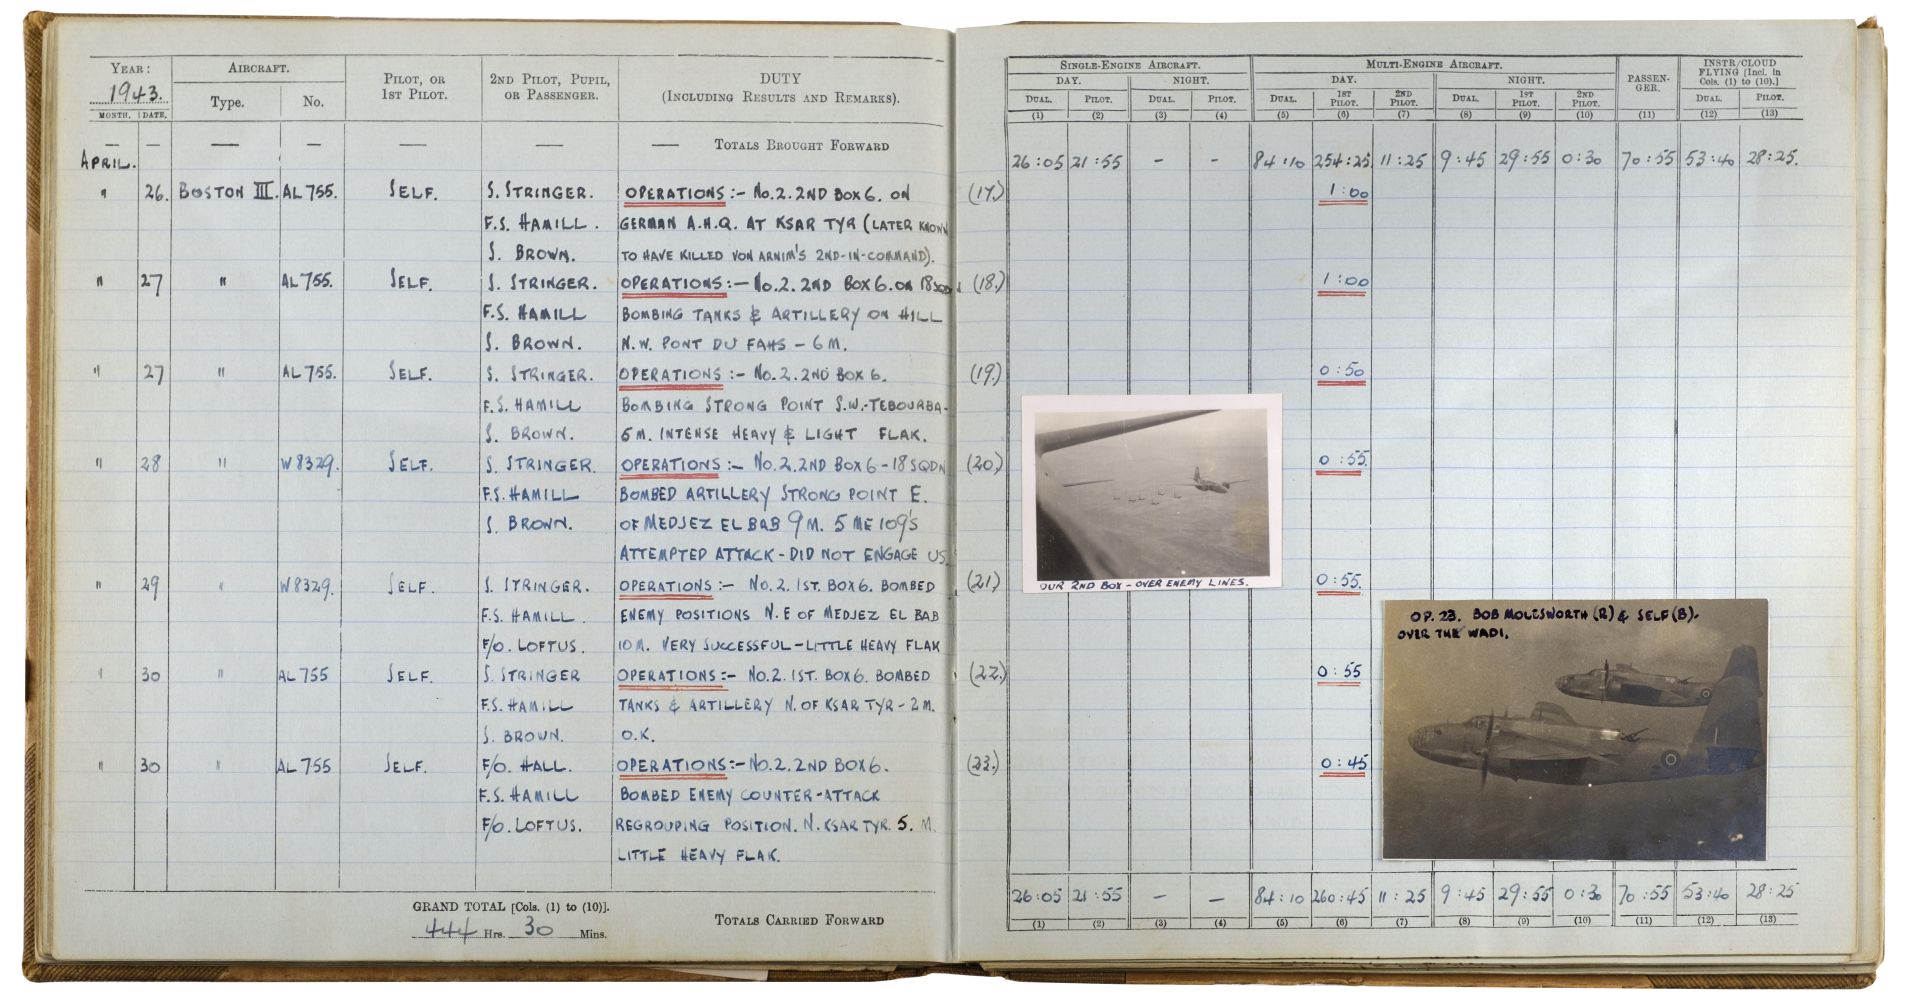 YEAR: AIRCRAFT. PILOT, OR 1ST PILOT. 2ND PILOT, PUPIL, OR PASSENGER. DUTY (INCLUDING RESULTS AND REMARKS).
1943. Type. No.
MONTH. DATE.
— — — — — — TOTALS BROUGHT FORWARD
APRIL.
" 26. BOSTON III. AL755. SELF. S. STRINGER. OPERATIONS:- No.2. 2ND BOX 6. ON
F.S. HAMILL. GERMAN A.H.Q. AT KSAR TYR (LATER KNOWN
S. BROWN. TO HAVE KILLED VON ARNIM'S 2ND-IN-COMMAND).
" 27 " AL755. SELF. S. STRINGER. OPERATIONS:- No.2. 2ND BOX 6. ON 18 SQDN
F.S. HAMILL BOMBING TANKS & ARTILLERY ON HILL
S. BROWN. N.W. PONT DU FAHS - 6M.
" 27 " AL755. SELF. S. STRINGER. OPERATIONS:- No.2. 2ND BOX 6.
F.S. HAMILL BOMBING STRONG POINT S.W.-TEBOURBA-
S. BROWN. 5M. INTENSE HEAVY & LIGHT FLAK.
" 28 " W8329. SELF. S. STRINGER. OPERATIONS:- No.2. 2ND BOX 6 - 18 SQDN
F.S. HAMILL BOMBED ARTILLERY STRONG POINT E.
S. BROWN. OF MEDJEZ EL BAB 9M. 5 ME 109'S
ATTEMPTED ATTACK - DID NOT ENGAGE US.
" 29 " W8329. SELF. S. STRINGER. OPERATIONS:- No.2. 1ST. BOX 6. BOMBED
F.S. HAMILL. ENEMY POSITIONS N.E OF MEDJEZ EL BAB
F/O. LOFTUS. 10M. VERY SUCCESSFUL - LITTLE HEAVY FLAK
" 30 " AL755 SELF. S. STRINGER OPERATIONS:- No.2. 1ST. BOX 6. BOMBED
F.S. HAMILL TANKS & ARTILLERY N. OF KSAR TYR - 2M.
S. BROWN. O.K.
" 30 " AL755 SELF. F/O. HALL. OPERATIONS:- No.2. 2ND BOX 6.
F.S. HAMILL BOMBED ENEMY COUNTER-ATTACK
F/O. LOFTUS. REGROUPING POSITION. N. KSAR TYR. 5. M.
LITTLE HEAVY FLAK.
GRAND TOTAL [Cols. (1) to (10)].
444 Hrs. 30 Mins.
TOTALS CARRIED FORWARD
SINGLE-ENGINE AIRCRAFT. MULTI-ENGINE AIRCRAFT. PASSEN-GER. INSTR/CLOUD FLYING [Incl. in Cols. (1) to (10).]
DAY. NIGHT. DAY. NIGHT.
DUAL. PILOT. DUAL. PILOT. DUAL. 1ST PILOT. 2ND PILOT. DUAL. 1ST PILOT. 2ND PILOT. DUAL. PILOT.
(1) (2) (3) (4) (5) (6) (7) (8) (9) (10) (11) (12) (13)
26:05 21:55 - - 84:10 254:25 11:25 9:45 29:55 0:30 70:55 53:40 28:25.
(17.) 1:00
(18.) 1:00
(19.) 0:50
(20.) 0:55.
(21.) 0:55.
(22.) 0:55
(23.) 0:45
OUR 2ND BOX - OVER ENEMY LINES.
OP. 23. BOB MOLESWORTH (R) & SELF (B).
OVER THE WADI.
26:05 21:55 — — 84:10 260:45 11:25 9:45 29:55 0:30 70:55 53:40 28:25
(1) (2) (3) (4) (5) (6) (7) (8) (9) (10) (11) (12) (13)